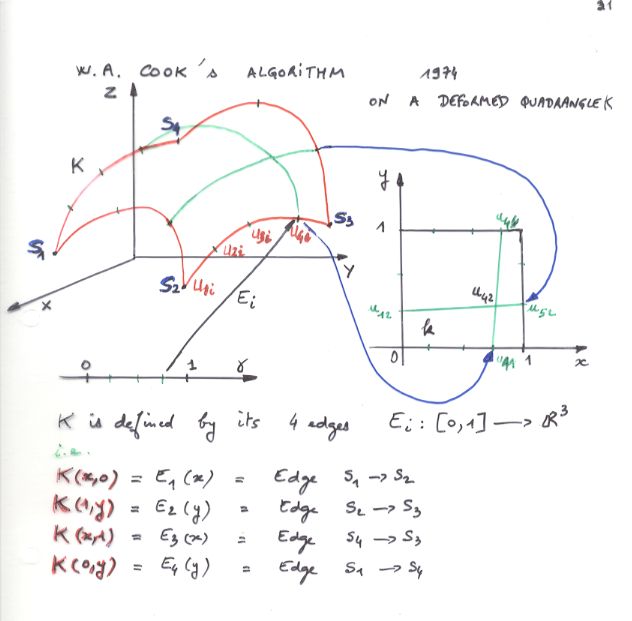 21
W.A. COOK'S ALGORITHM 1974
ON A DEFORMED QUADRANGLE K
Z
S4
K
S1
S2
S3
u1i
u2i
u3i
u4i
Ei
X
Y
0 1 γ
y
1
u44
u42
u12
u52
k
0
u41
1
x
K is defined by its 4 edges Ei : [0,1] → R³
i.e.
K(x,0) = E1(x) = Edge S1 → S2
K(1,y) = E2(y) = Edge S2 → S3
K(x,1) = E3(x) = Edge S4 → S3
K(0,y) = E4(y) = Edge S1 → S4